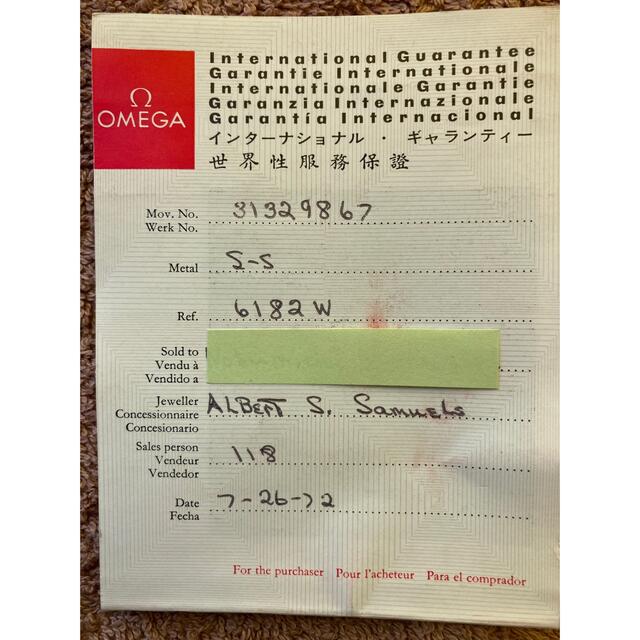 Ω
OMEGA
International Guarantee
Garantie Internationale
Internationale Garantie
Garanzia Internazionale
Garantía Internacional
インターナショナル ・ ギャランティー
世界性服務保證
Mov. No. 31329867
Werk No.
Metal S-S
Ref. 6182W
Sold to
Vendu à
Vendido a
Jeweller
Concessionnaire ALBERT S. SamueLs
Concesionario
Sales person
Vendeur 118
Vendedor
Date 7-26-72
Fecha
For the purchaser Pour l'acheteur Para el comprador